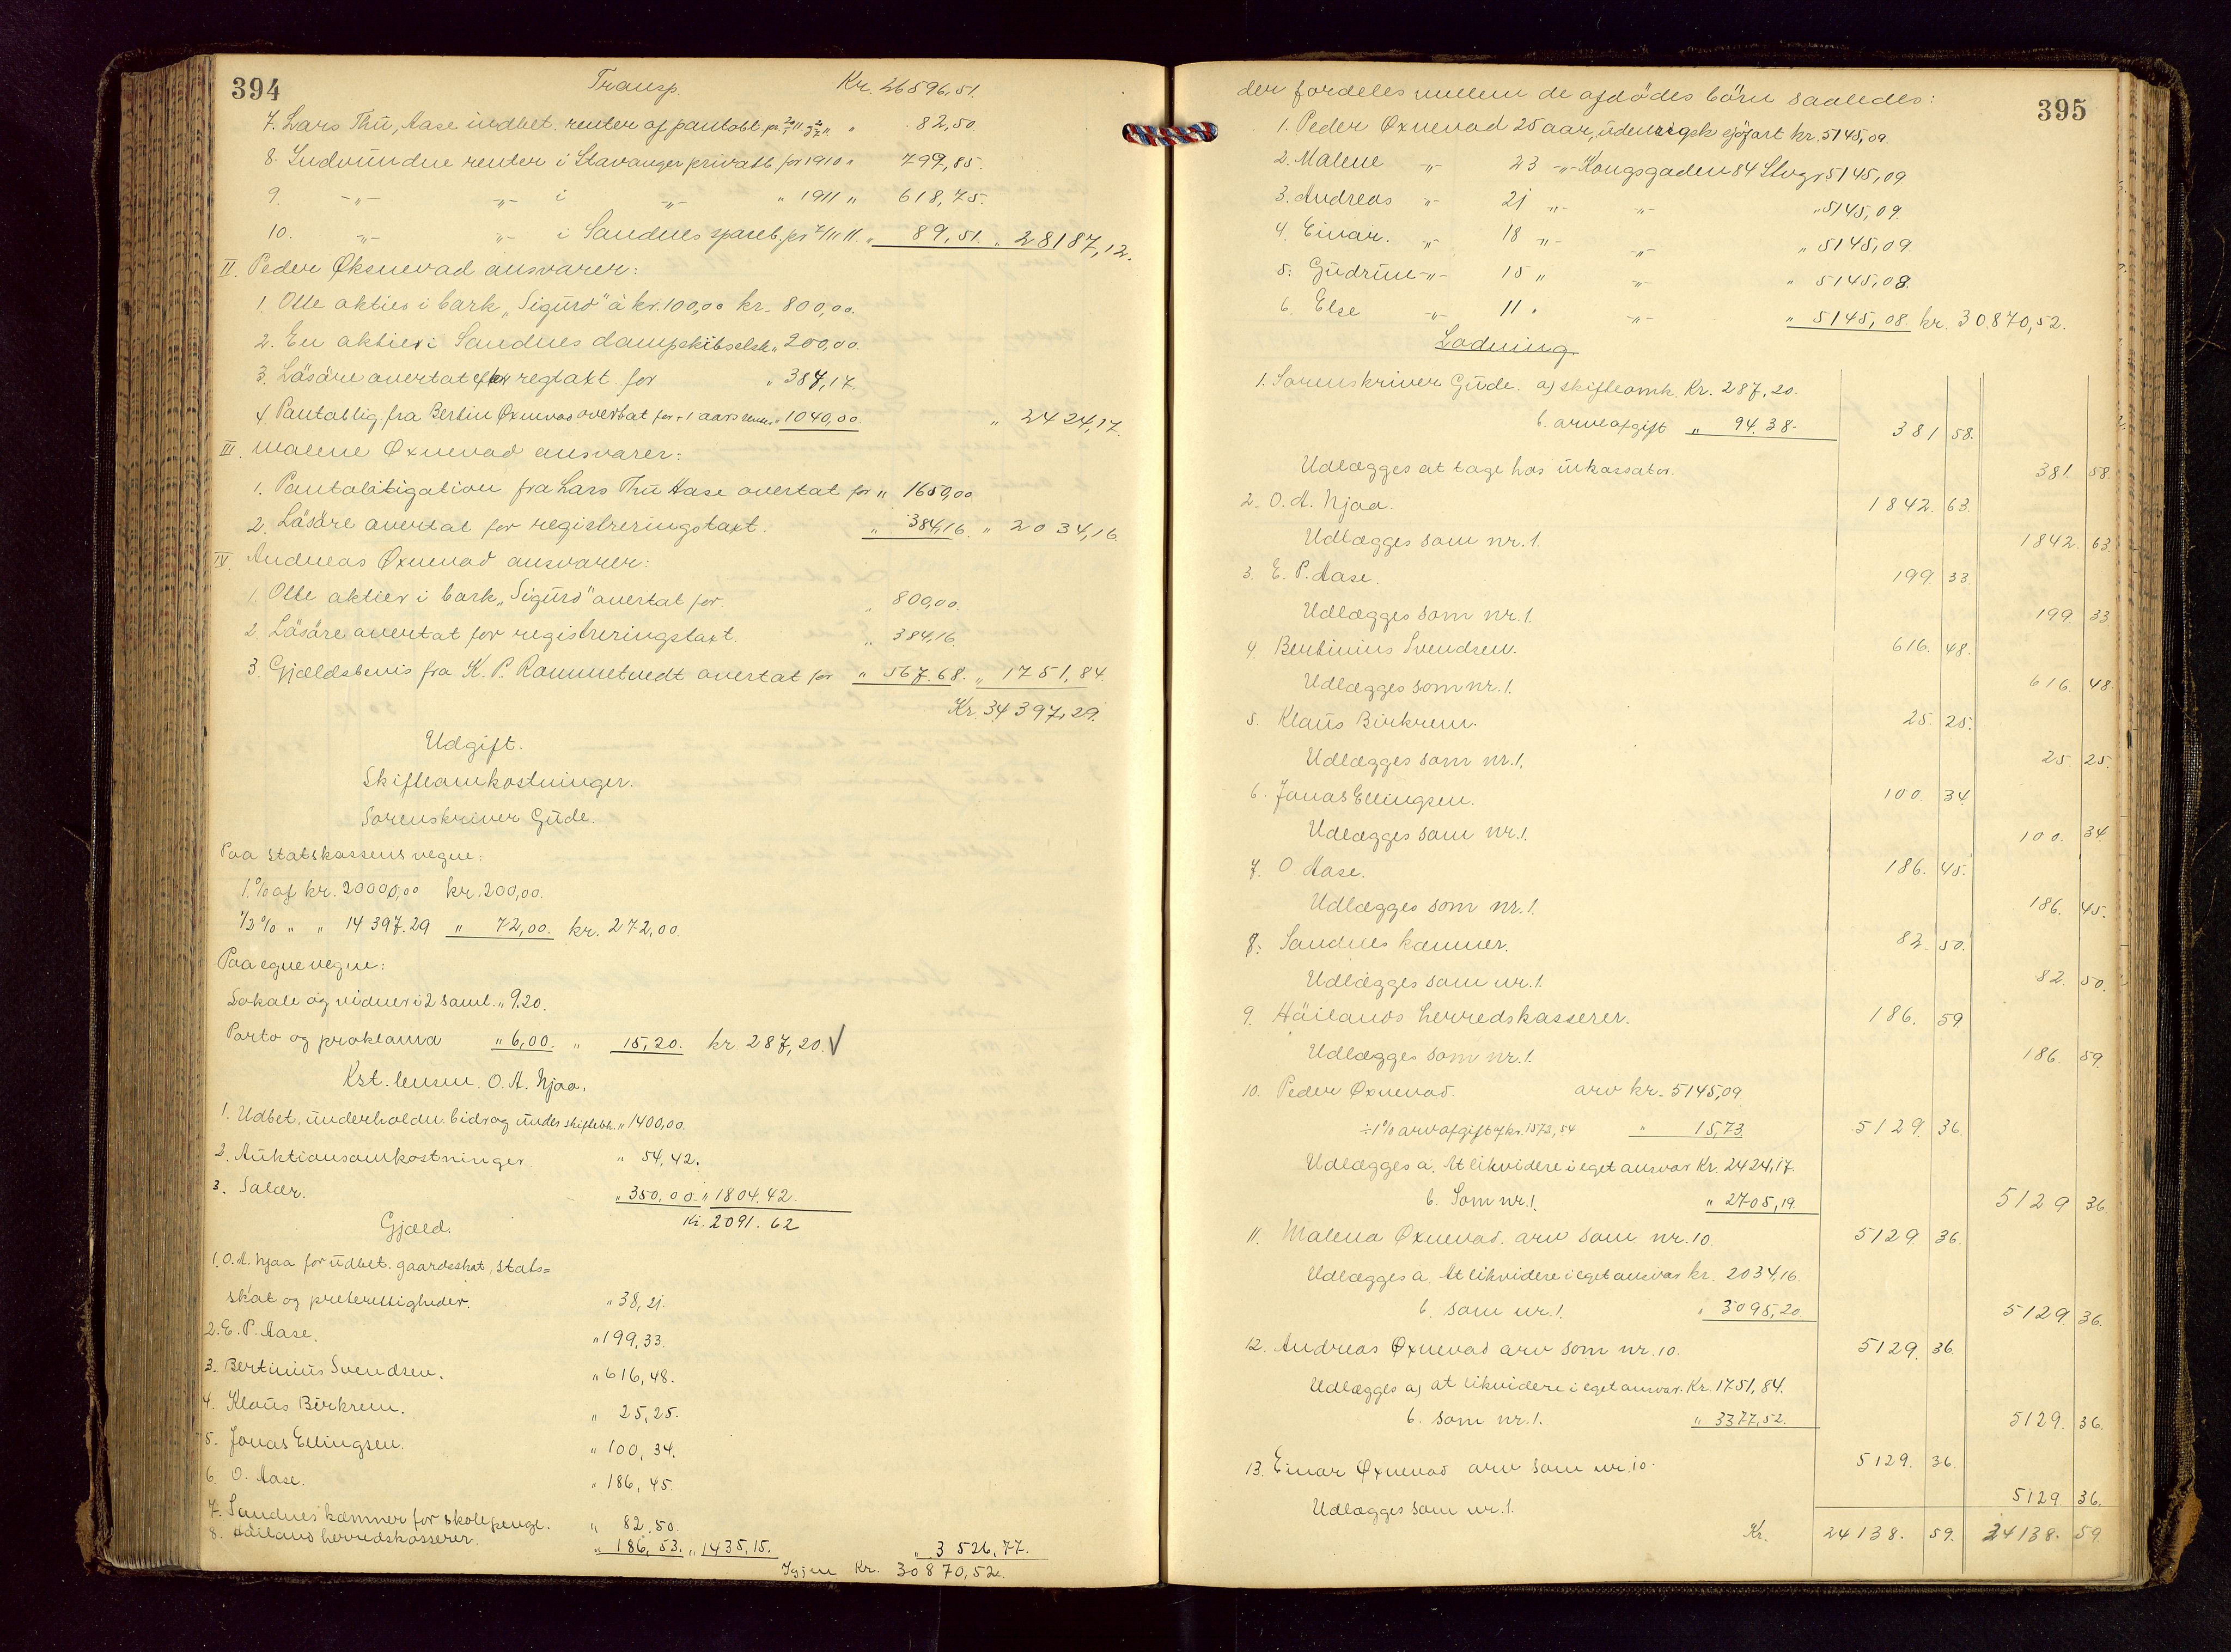 394
Transp. Kr. 26596,51.
7. Lars Thu, Aase indbet. renter af pantobl. " 82,50
8. Indvundne renter i Stavanger privatb. for 1910 " 799,85.
9. -"- -"- i -"- " 1911 " 618,75.
10. -"- -"- i Sandnes spareb. pr 7/11 11. " 89,51. " 28187,12.
II. Peder Øksnevad ansvarer:
1. Otte aktier i bark "Sigurd" à kr. 100,00 kr. 800,00.
2. En aktier i Sandnes dampskibsselsk. " 200,00.
3. Løsøre overtat efter regtakt for " 384,17
4. Pantoblig. fra Bertin Øxnevad overtat for + 1 aars rente " 1040,00. " 2424,17.
III. Malene Øxnevad ansvarer:
1. Pantobligation fra Lars Thu Aase overtat for " 1650,00
2. Løsøre overtat for registreringstaxt. " 384,16. " 2034,16.
IV. Andreas Øxnevad ansvarer:
1. Otte aktier i bark "Sigurd" overtat for " 800,00.
2. Løsøre overtat for registreringstaxt. " 384,16.
3. Gjældsbevis fra K. P. Rommetvedt overtat for " 567.68. " 1751,84.
Kr. 34397,29.
Udgift.
Skifteomkostninger.
Sorenskriver Gude.
Paa statskassens vegne:
1% af kr. 20000,00 kr. 200,00.
1/2% " " 14397.29 " 72,00. kr. 272,00.
Paa egne vegne:
Lokale og vidner i 2 saml. " 9.20.
Porto og proklama " 6,00. " 15,20. kr. 287,20. √
Kst. lensm. O. A. Njaa.
1. Udbet. underholdn. bidrag under skiftebh. " 1400,00.
2. Auktionsomkostninger " 54,42.
3. Salær. " 350,00. " 1804,42.
Kr. 2091.62
Gjæld.
1. O. A. Njaa for udbet. gaardsskat, stats=
skat og presterettigheder. " 38,21.
2. E. P. Aase. " 199,33.
3. Bertinius Svendsen. " 616,48.
4. Klaus Birkrem. " 25,25.
5. Jonas Ellingsen. " 100,34.
6. O. Aase. " 186,45.
7. Sandnes kæmner for skolepenge. " 82,50.
8. Høiland herredskasserer. " 186,53. " 1435,15. " 3526,77.
Igjen Kr. 30870,52.
395
der fordeles mellem de afdødes børn saaledes:
1. Peder Øxnevad 25 aar, udenrigsk sjøfart kr. 5145,09.
2. Malene -"- 23 -"- Kongsgaden 84 Stvgr " 5145,09
3. Andreas -"- 21 -"- -"- " 5145,09.
4. Einar. -"- 18 -"- -"- " 5145,09.
5. Gudrun -"- 15 " -"- " 5145,08.
6. Else -"- 11 " -"- " 5145,08. kr. 30870,52.
Lodning
1. Sorenskriver Gude. a, skifteomk. Kr. 287,20.
b. arveafgift " 94.38. 381 58.
Udlægges at tage hos inkassator. 381. 58.
2. O. A. Njaa. 1842. 63.
Udlægges som nr. 1. 1842. 63.
3. E. P. Aase. 199. 33.
Udlægges som nr. 1. 199. 33
4. Bertinius Svendsen. 616. 48.
Udlægges som nr. 1. 616. 48.
5. Klaus Birkrem. 25. 25.
Udlægges som nr. 1. 25. 25.
6. Jonas Ellingsen. 100. 34.
Udlægges som nr. 1. 100. 34.
7. O. Aase. 186. 45.
Udlægges som nr. 1. 186. 45.
8. Sandnes kæmner. 82. 50.
Udlægges som nr. 1. 82. 50.
9. Høilands herredskasserer. 186. 59
Udlægges som nr. 1. 186. 59.
10. Peder Øxnevad. arv kr. 5145,09
÷ 1% arvafgift af kr. 1573,54 " 15,73 5129. 36.
Udlægges a. At likvidere i eget ansvar Kr. 2424,17.
b. Som nr. 1. " 2705,19. 5129 36.
11. Malena Øxnevad. arv som nr. 10. 5129. 36.
Udlægges a. At likvidere i eget ansvar kr. 2034,16.
b. som nr. 1. " 3095,20 5129. 36.
12. Andreas Øxnevad arv som nr. 10. 5129. 36.
Udlægges a, at likvidere i eget ansvar. Kr. 1751,84.
b. som nr. 1. " 3377,52. 5129. 36.
13. Einar Øxnevad arv som nr. 10. 5129. 36.
Udlægges som nr. 1. 5129 36.
Kr. 24138. 59. 24138. 59